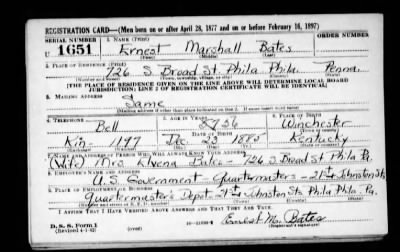 REGISTRATION CARD—(Men born on or after April 28, 1877 and on or before February 16, 1897)
SERIAL NUMBER 1. NAME (Print) ORDER NUMBER
U 1651 Ernest Marshall Bates
(First) (Middle) (Last)
2. PLACE OF RESIDENCE (Print)
726 S. Broad St Phila Phila. Penna.
(Number and street) (Town, township, village, or city) (County) (State)
[THE PLACE OF RESIDENCE GIVEN ON THE LINE ABOVE WILL DETERMINE LOCAL BOARD
JURISDICTION; LINE 2 OF REGISTRATION CERTIFICATE WILL BE IDENTICAL]
3. MAILING ADDRESS
Same
[Mailing address if other than place indicated on line 2. If same insert word same]
4. TELEPHONE 5. AGE IN YEARS 6. PLACE OF BIRTH
Bell 56 Winchester
DATE OF BIRTH
Kin- 1197 Dec. 23 1885 Kentucky
7. NAME AND ADDRESS OF PERSON WHO WILL ALWAYS KNOW YOUR ADDRESS
(Wife) Mrs. Bates - 726 S. Broad St Phila Pa.
8. EMPLOYER'S NAME AND ADDRESS
U.S. Government - Quartermasters - 21st Johnston Sts
9. PLACE OF EMPLOYMENT OR BUSINESS
Quartermaster's Depot 21st Johnston Sts Phila Phila. Pa.
I AFFIRM THAT I HAVE VERIFIED ABOVE ANSWERS AND THAT THEY ARE TRUE.
D. S. S. Form 1
(Revised 4-1-42) Ernest M. Bates